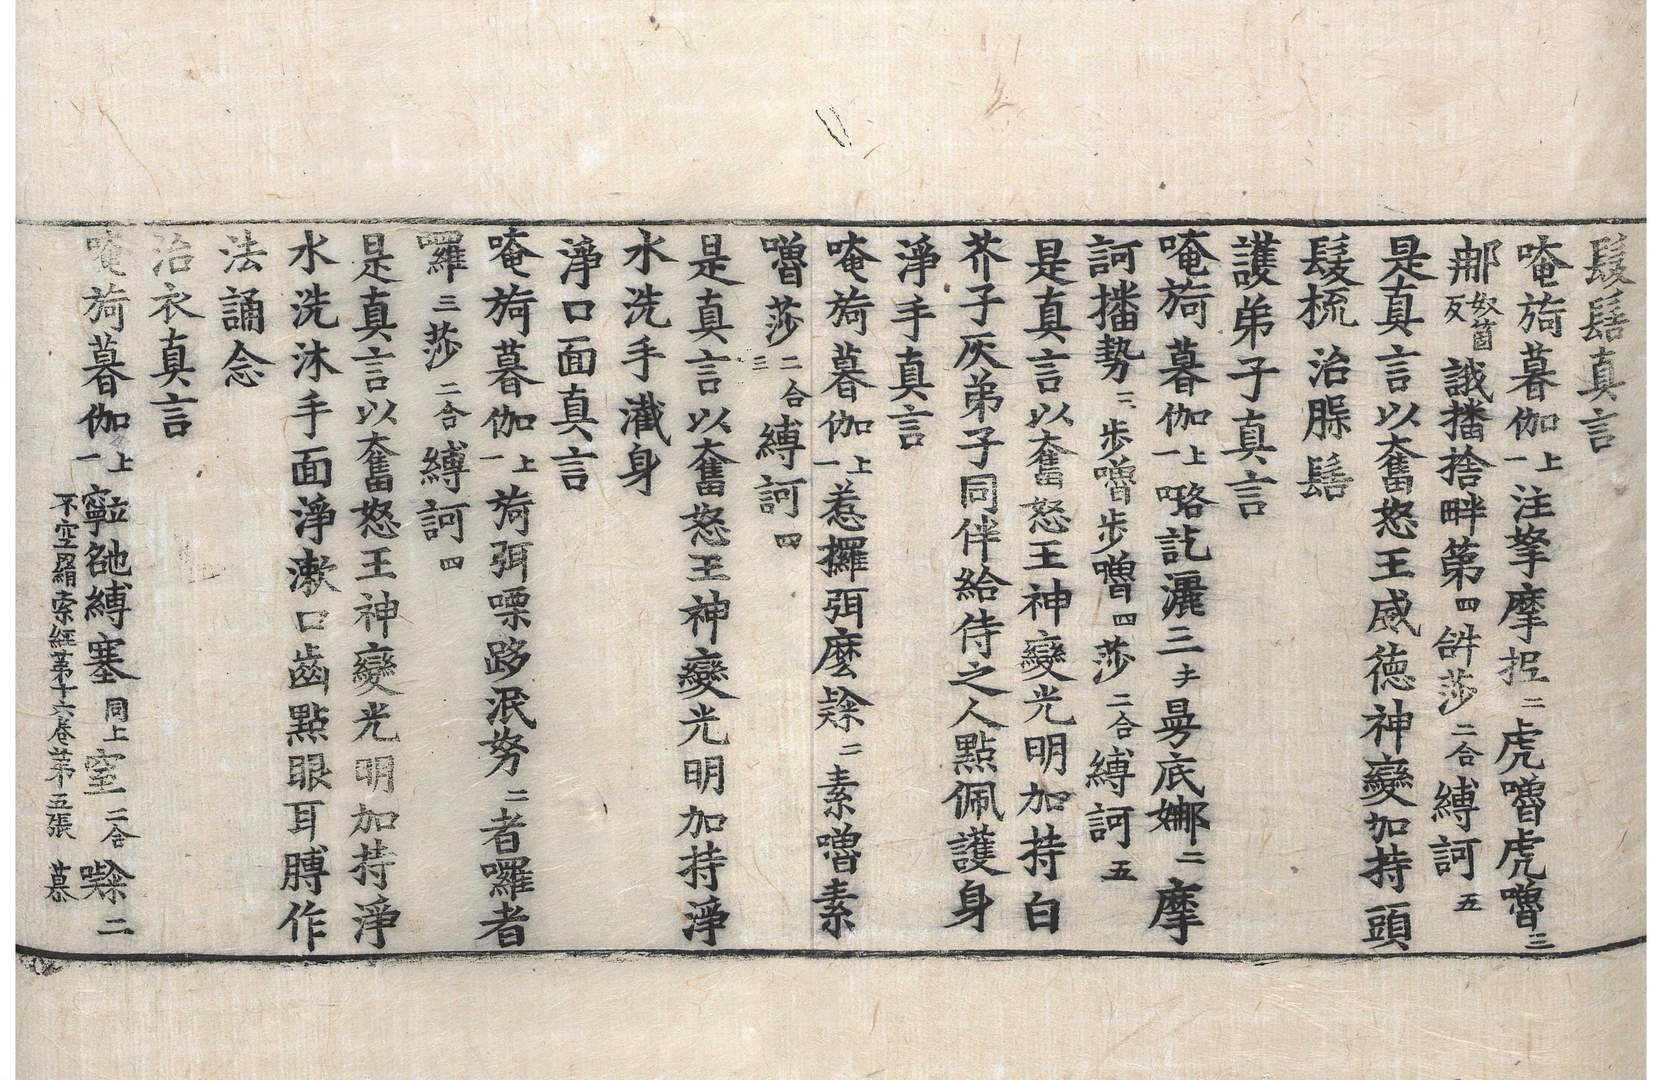 髮髻真言
唵旖暮伽上一注拏摩抳二虎嚕虎嚕三
𨚗奴箇反誐播捨畔第四𤙖莎二合縛訶五
是真言以奮怒王威德神變加持頭
髮梳治臊髻
護弟子真言
唵旖暮伽上一略訖灑三才曼底娜二摩
訶播勢三步嚕步嚕四莎二合縛訶五
是真言以奮怒王神變光明加持白
芥子灰弟子同伴給侍之人點佩護身
淨手真言
唵旖暮伽上一惹攞弭麼㘑二素嚕素
嚕莎二合三縛訶四
是真言以奮怒王神變光明加持淨
水洗手灑身
淨口面真言
唵旖暮伽上一旖弭嘌哆泯努二者囉者
囉三莎二合縛訶四
是真言以奮怒王神變光明加持淨
水洗沐手面淨漱口齒點眼耳膊作
法誦念
治衣真言
唵旖暮伽上一縛塞同上窒二合㘑二
不空羂索經第十六卷第五張 慕